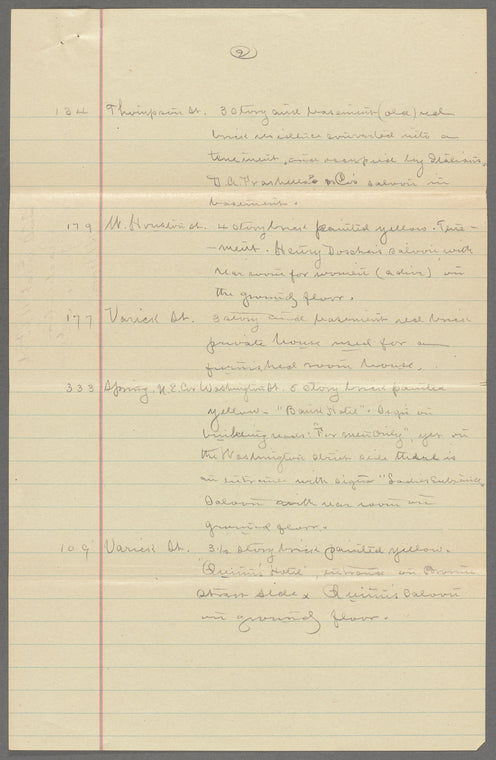 9
134 Thompson St. 3 story and basement (old) red
brick residence converted into a
tenement, and occupied by Italians.
D. A. & Co's saloon in
basement.
179 W. Houston St. 4 story brick painted yellow. Tene-
-ment. Henry Doscher's saloon, with
rear room for women (adier) on
the ground floor.
177 Varick St. 3 story and basement red brick
private house used for a
furnished room house.
333 Spring, N. E. Cor Washington St. 5 story brick painted
yellow - "Bank Hotel". Sign on
building reads: "For men Only", yet on
the Washington street side there is
an entrance with sign "Ladies Entrance".
Saloon with rear room on
ground floor.
109 Varick St. 3½ story brick painted yellow.
"Quinn's Hotel", entrance on Broome
Street side & Quinn's Saloon
on ground floor.